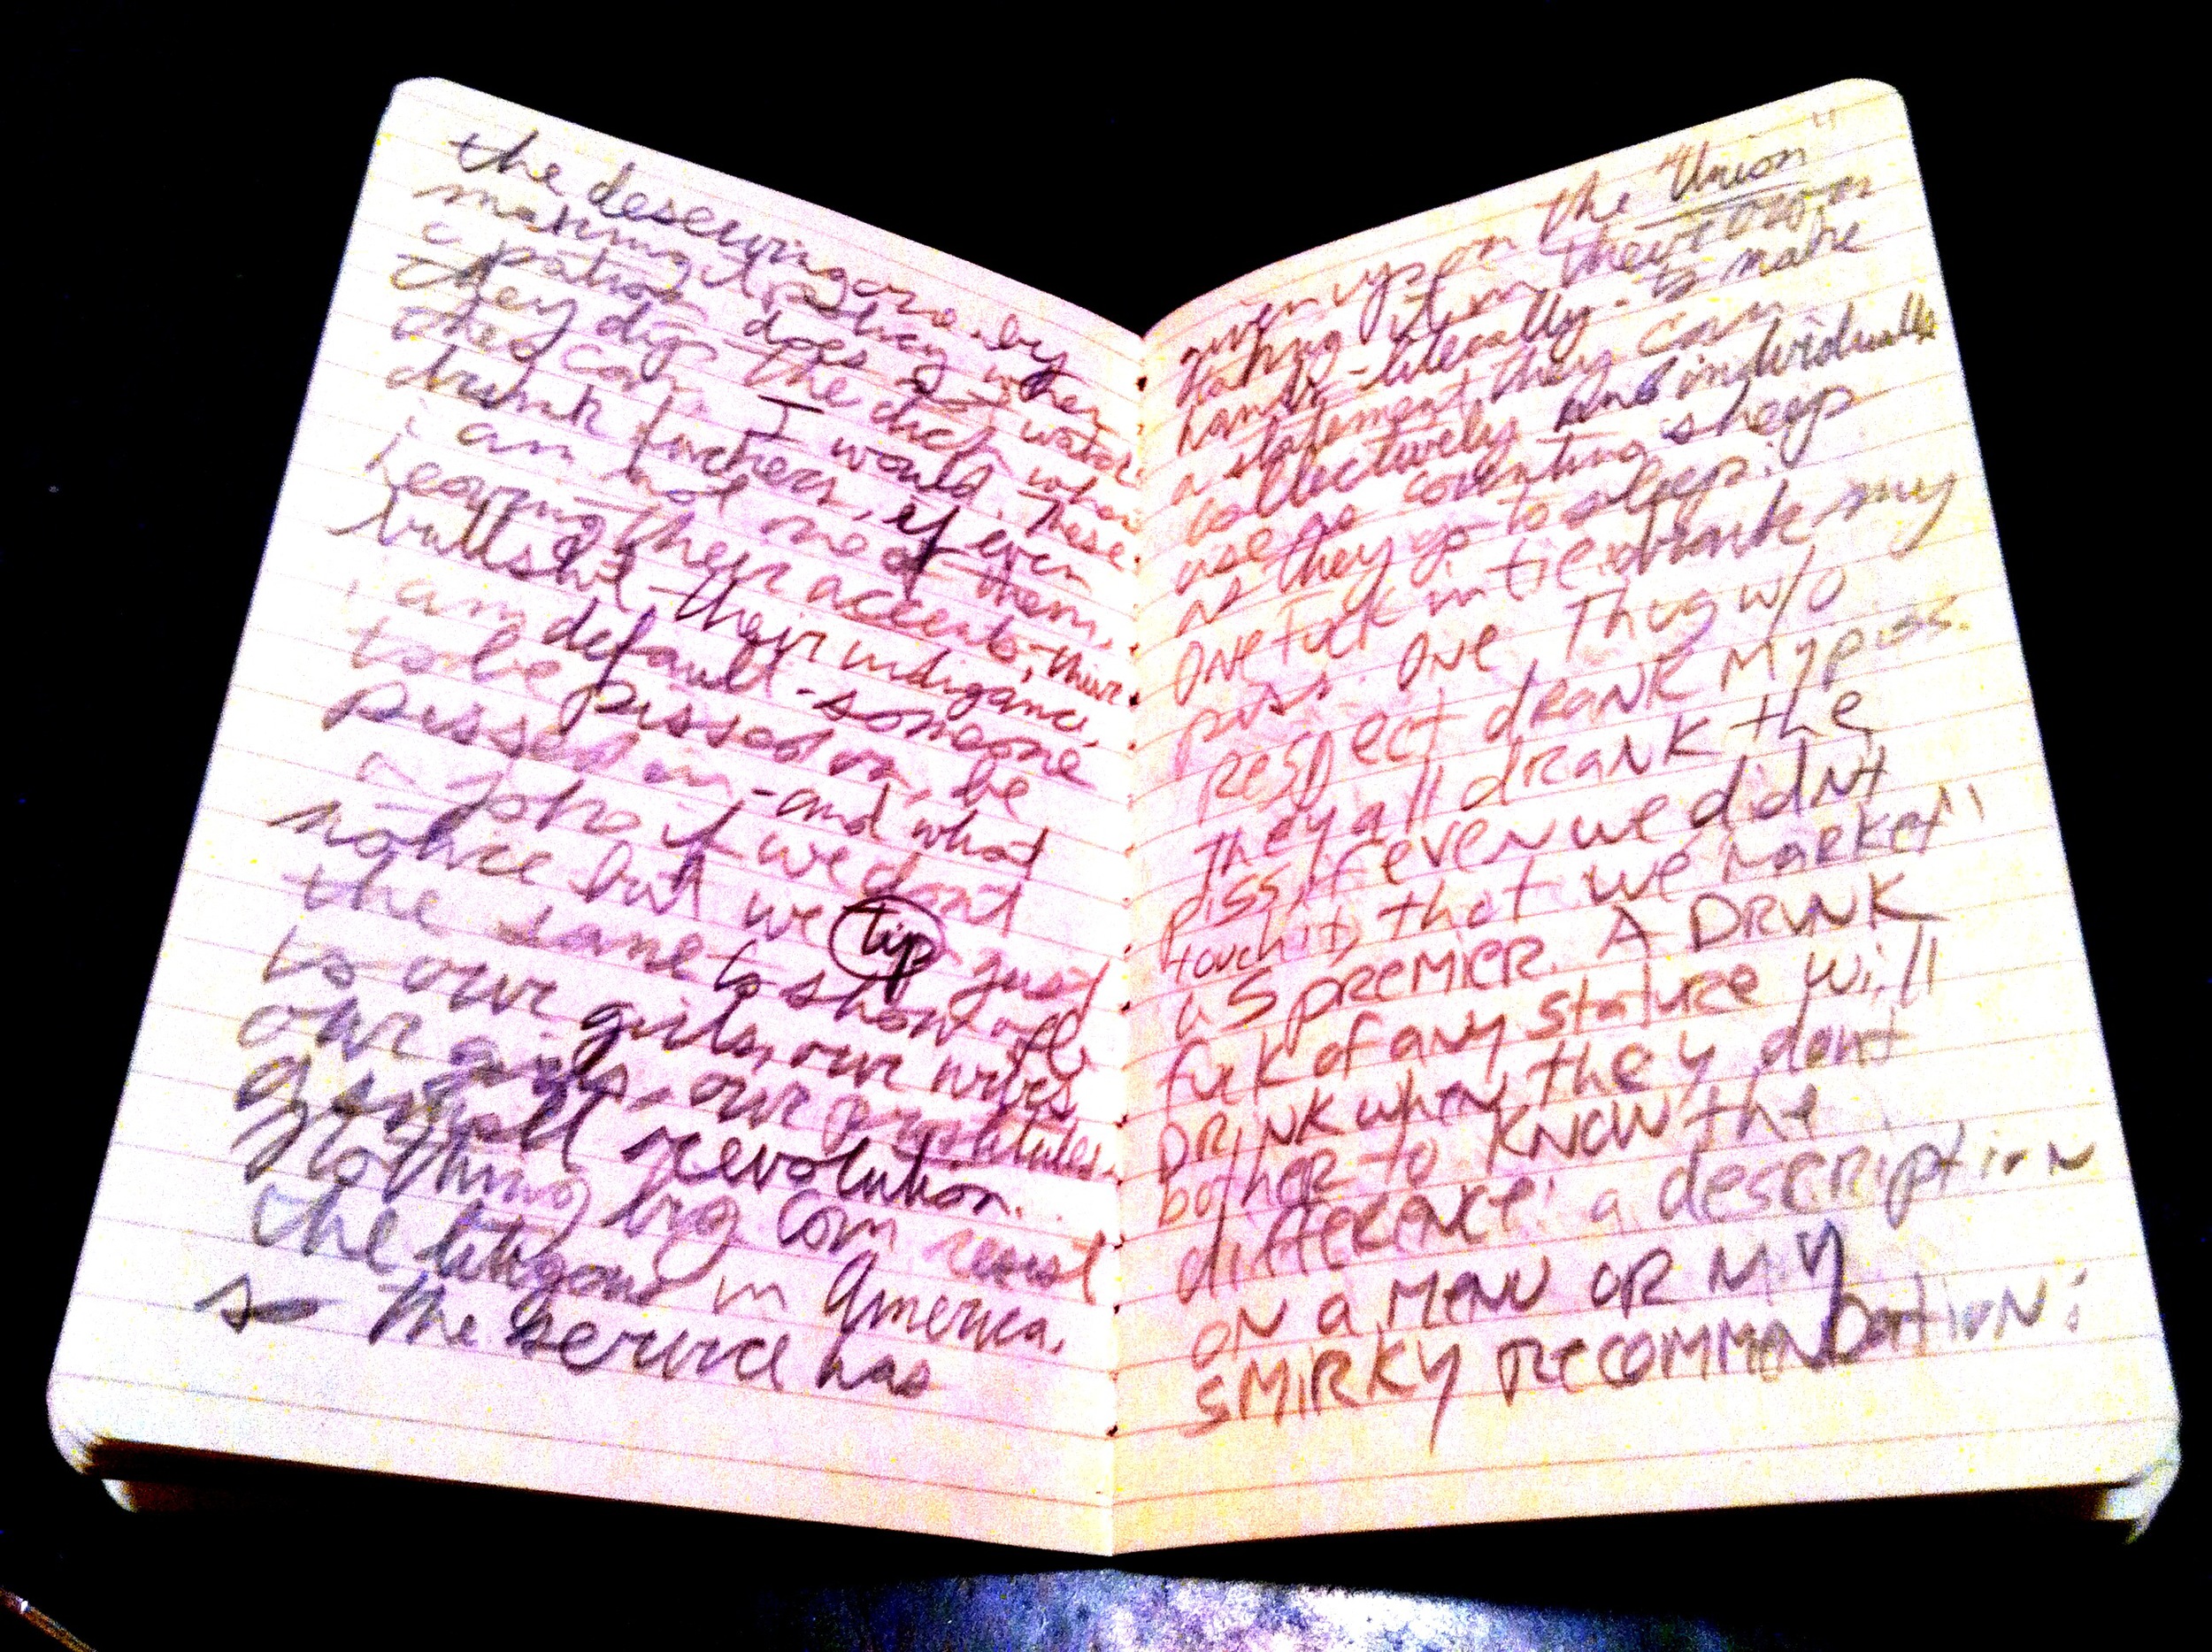 the deserving ground by
making it sticky when
a patron does so water
they dig the ditch when
they can. I would. These
drunk fuckers, if even
i am not one of them,
hearing their accents, their
bullshit - their indigance,
i am default - someone
to be pissed on, be
pissed in - and what
a joke if we don't
notice but we tip just
the same to show off
to our girls, our wives
our gangs, our prostitutes.
a small revolution.
Nothing big can resist
the litigant in America.
so the service has
given up on the "Union"
taking it in their own
hands - literally. to make
a statement they can
collectively and individually
use as counting sheep
as they go to sleep:
ONE FUCK in tie drank my
piss. ONE Thug w/o
respect drank my piss.
They all drank the
piss, if even we didnt
touch it, that we "market"
as premier. A DRUNK
fuck of any stature will
DRINK when they dont
bother to KNOW the
difference: a description
ON a MENU OR MY
SMIRKY RECOMMENDATION: